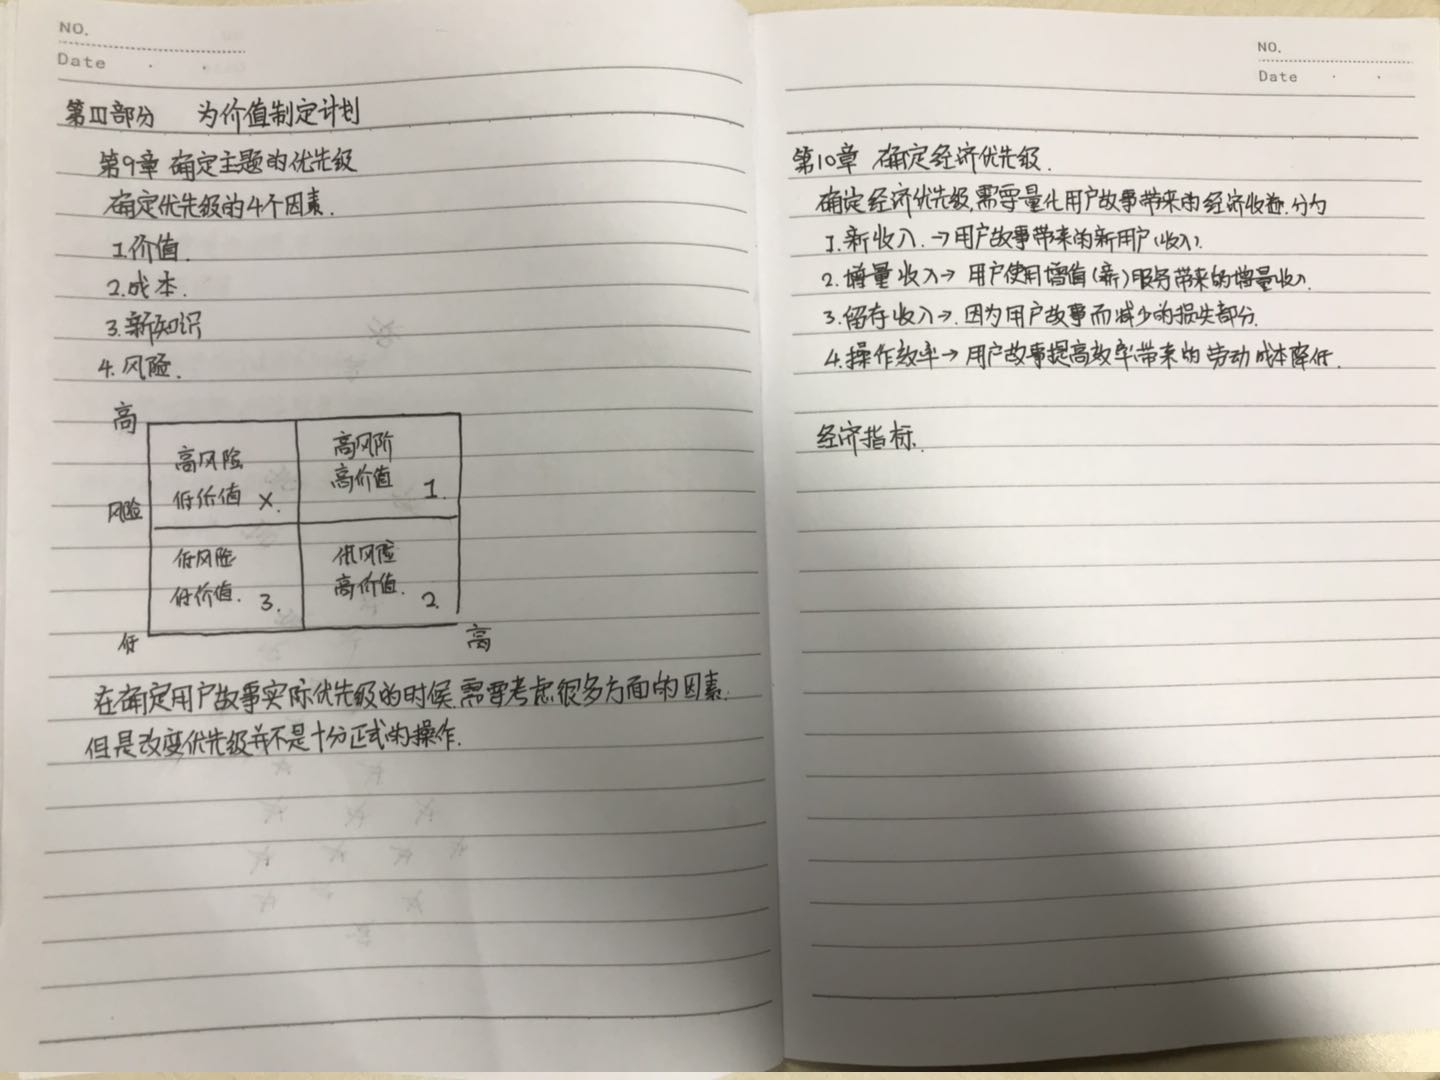 NO.
Date
第Ⅲ部分 为价值制定计划
第9章 确定主题的优先级
确定优先级的4个因素.
1.价值.
2.成本.
3.新知识
4.风险.
高
高风险
低价值 ×.
高风阶
高价值 1.
风险
低风险
低价值. 3.
低风险
高价值. 2.
低
高
在确定用户故事实际优先级的时候.需要考虑很多方面的因素.
但是改变优先级并不是十分正式的操作.
NO.
Date
第10章 确定经济优先级.
确定经济优先级,需要量化用户故事带来的经济收益.分为
1.新收入.→用户故事带来的新用户(收入).
2.增量收入→用户使用增值(新)服务带来的增量收入.
3.留存收入→.因为用户故事而减少的损失部分.
4.操作效率→用户故事提高效率带来的劳动成本降低.
经济指标.